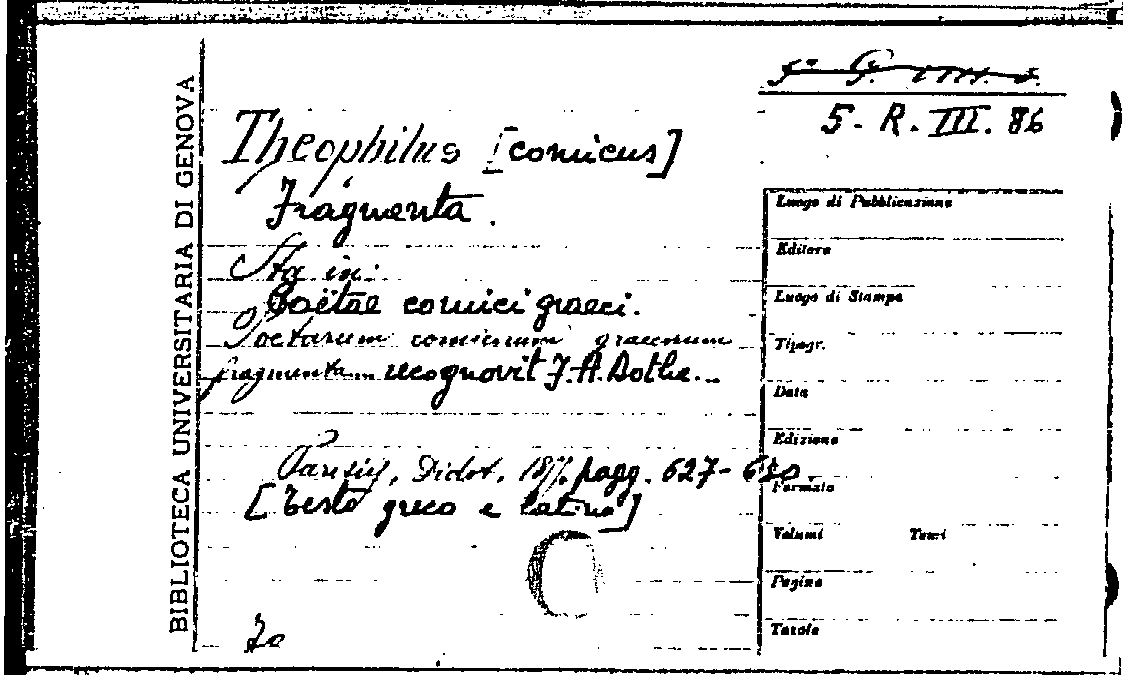 BIBLIOTECA UNIVERSITARIA DI GENOVA
5. R. III. 86
Theophilus [comicus]
Fragmenta.
Sta in:
Poëtae comici graeci.
Poetarum comicorum graecorum
fragmenta... recognovit F.H. Bothe...
Parisiis, Didot, pagg. 627-630
[Testo greco e latino]
Luogo di Pubblicazione
Editore
Luogo di Stampa
Tipogr.
Data
Edizione
Formato
Volumi Tomi
Pagine
Tavole